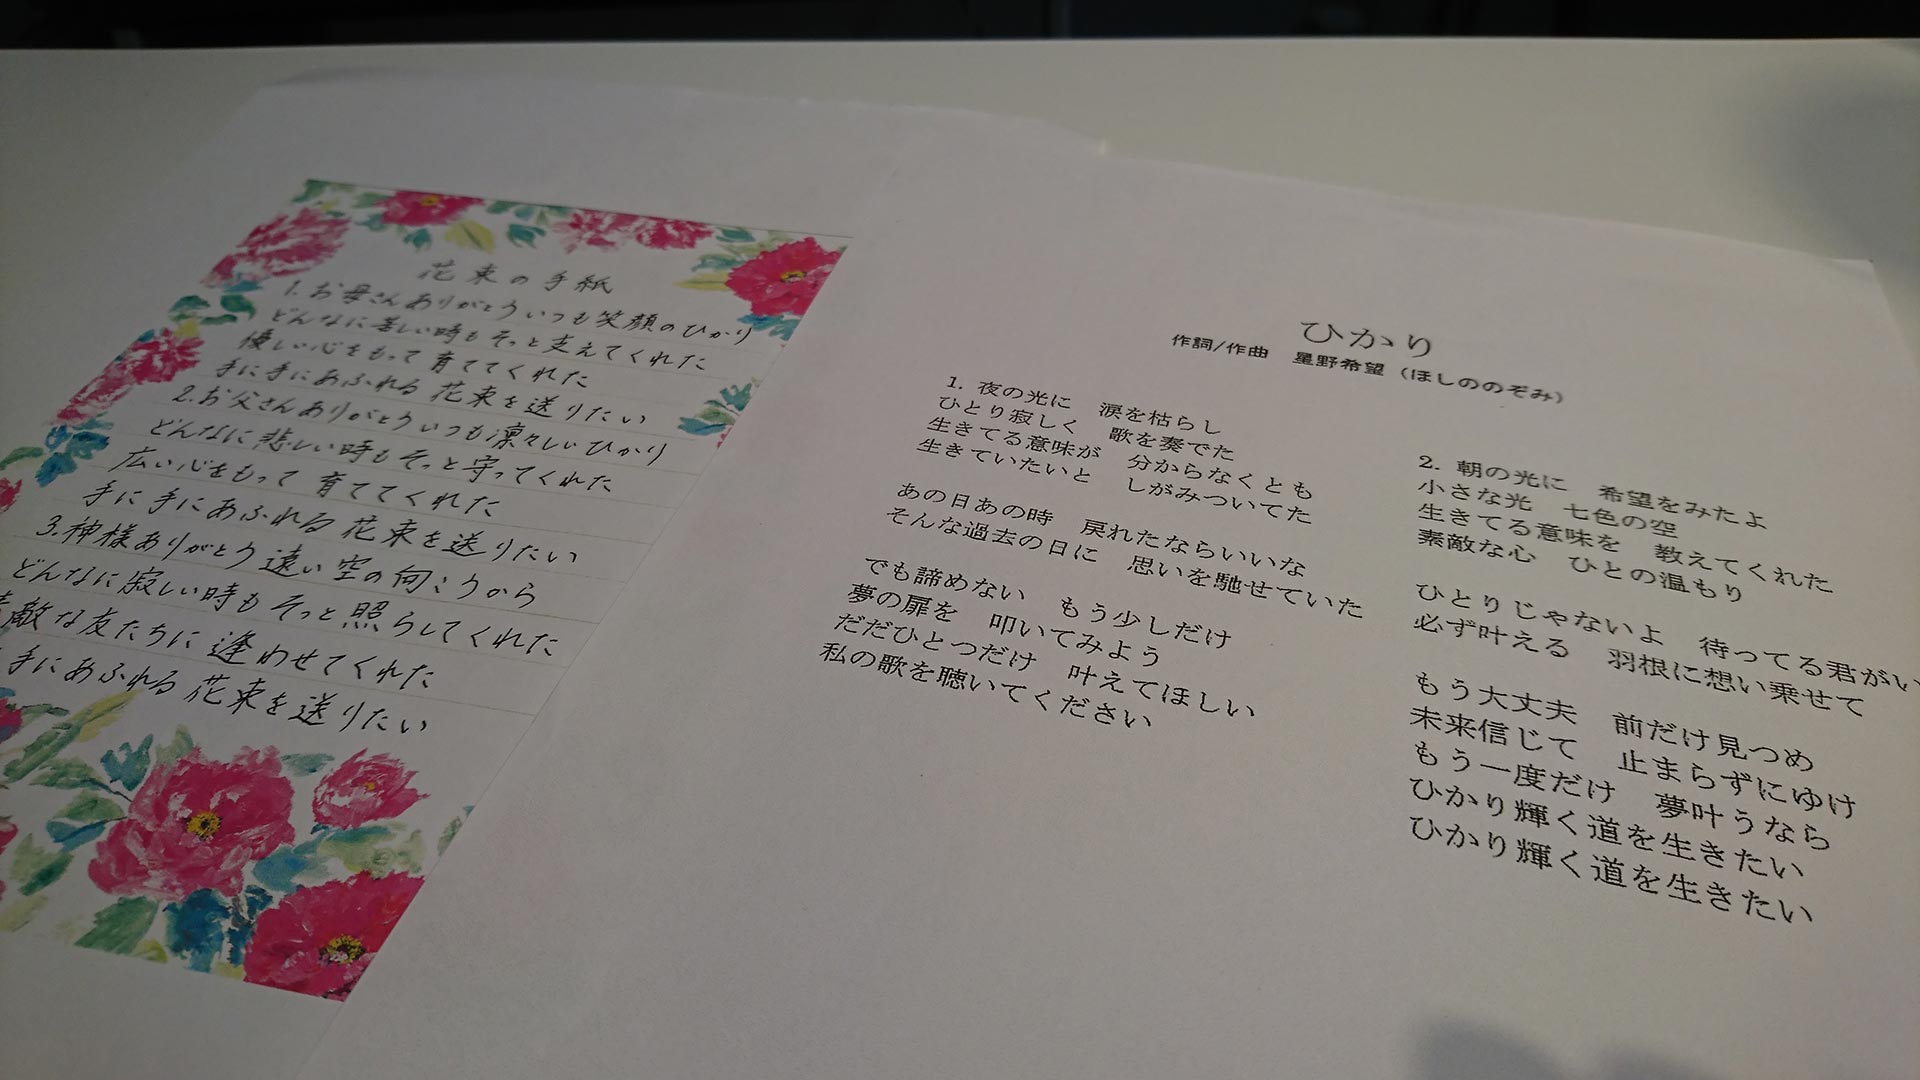 花束の手紙
1.お母さんありがとういつも笑顔のひかり
どんなに苦しい時もそっと支えてくれた
優しい心をもって育ててくれた
手に手にあふれる花束を送りたい
2.お父さんありがとういつも凛々しいひかり
どんなに悲しい時もそっと守ってくれた
広い心をもって育ててくれた
手に手にあふれる花束を送りたい
3.神様ありがとう遠い空の向こうから
どんなに寂しい時もそっと照らしてくれた
敵な友たちに逢わせてくれた
手にあふれる花束を送りたい
ひかり
作詞/作曲 星野希望(ほしののぞみ)
1. 夜の光に 涙を枯らし
ひとり寂しく 歌を奏でた
生きてる意味が 分からなくとも
生きていたいと しがみついてた
あの日あの時 戻れたならいいな
そんな過去の日に 思いを馳せていた
でも諦めない もう少しだけ
夢の扉を 叩いてみよう
だだひとつだけ 叶えてほしい
私の歌を聴いてください
2. 朝の光に 希望をみたよ
小さな光 七色の空
生きてる意味を 教えてくれた
素敵な心 ひとの温もり
ひとりじゃないよ 待ってる君がい
必ず叶える 羽根に想い乗せて
もう大丈夫 前だけ見つめ
未来信じて 止まらずにゆけ
もう一度だけ 夢叶うなら
ひかり輝く道を生きたい
ひかり輝く道を生きたい